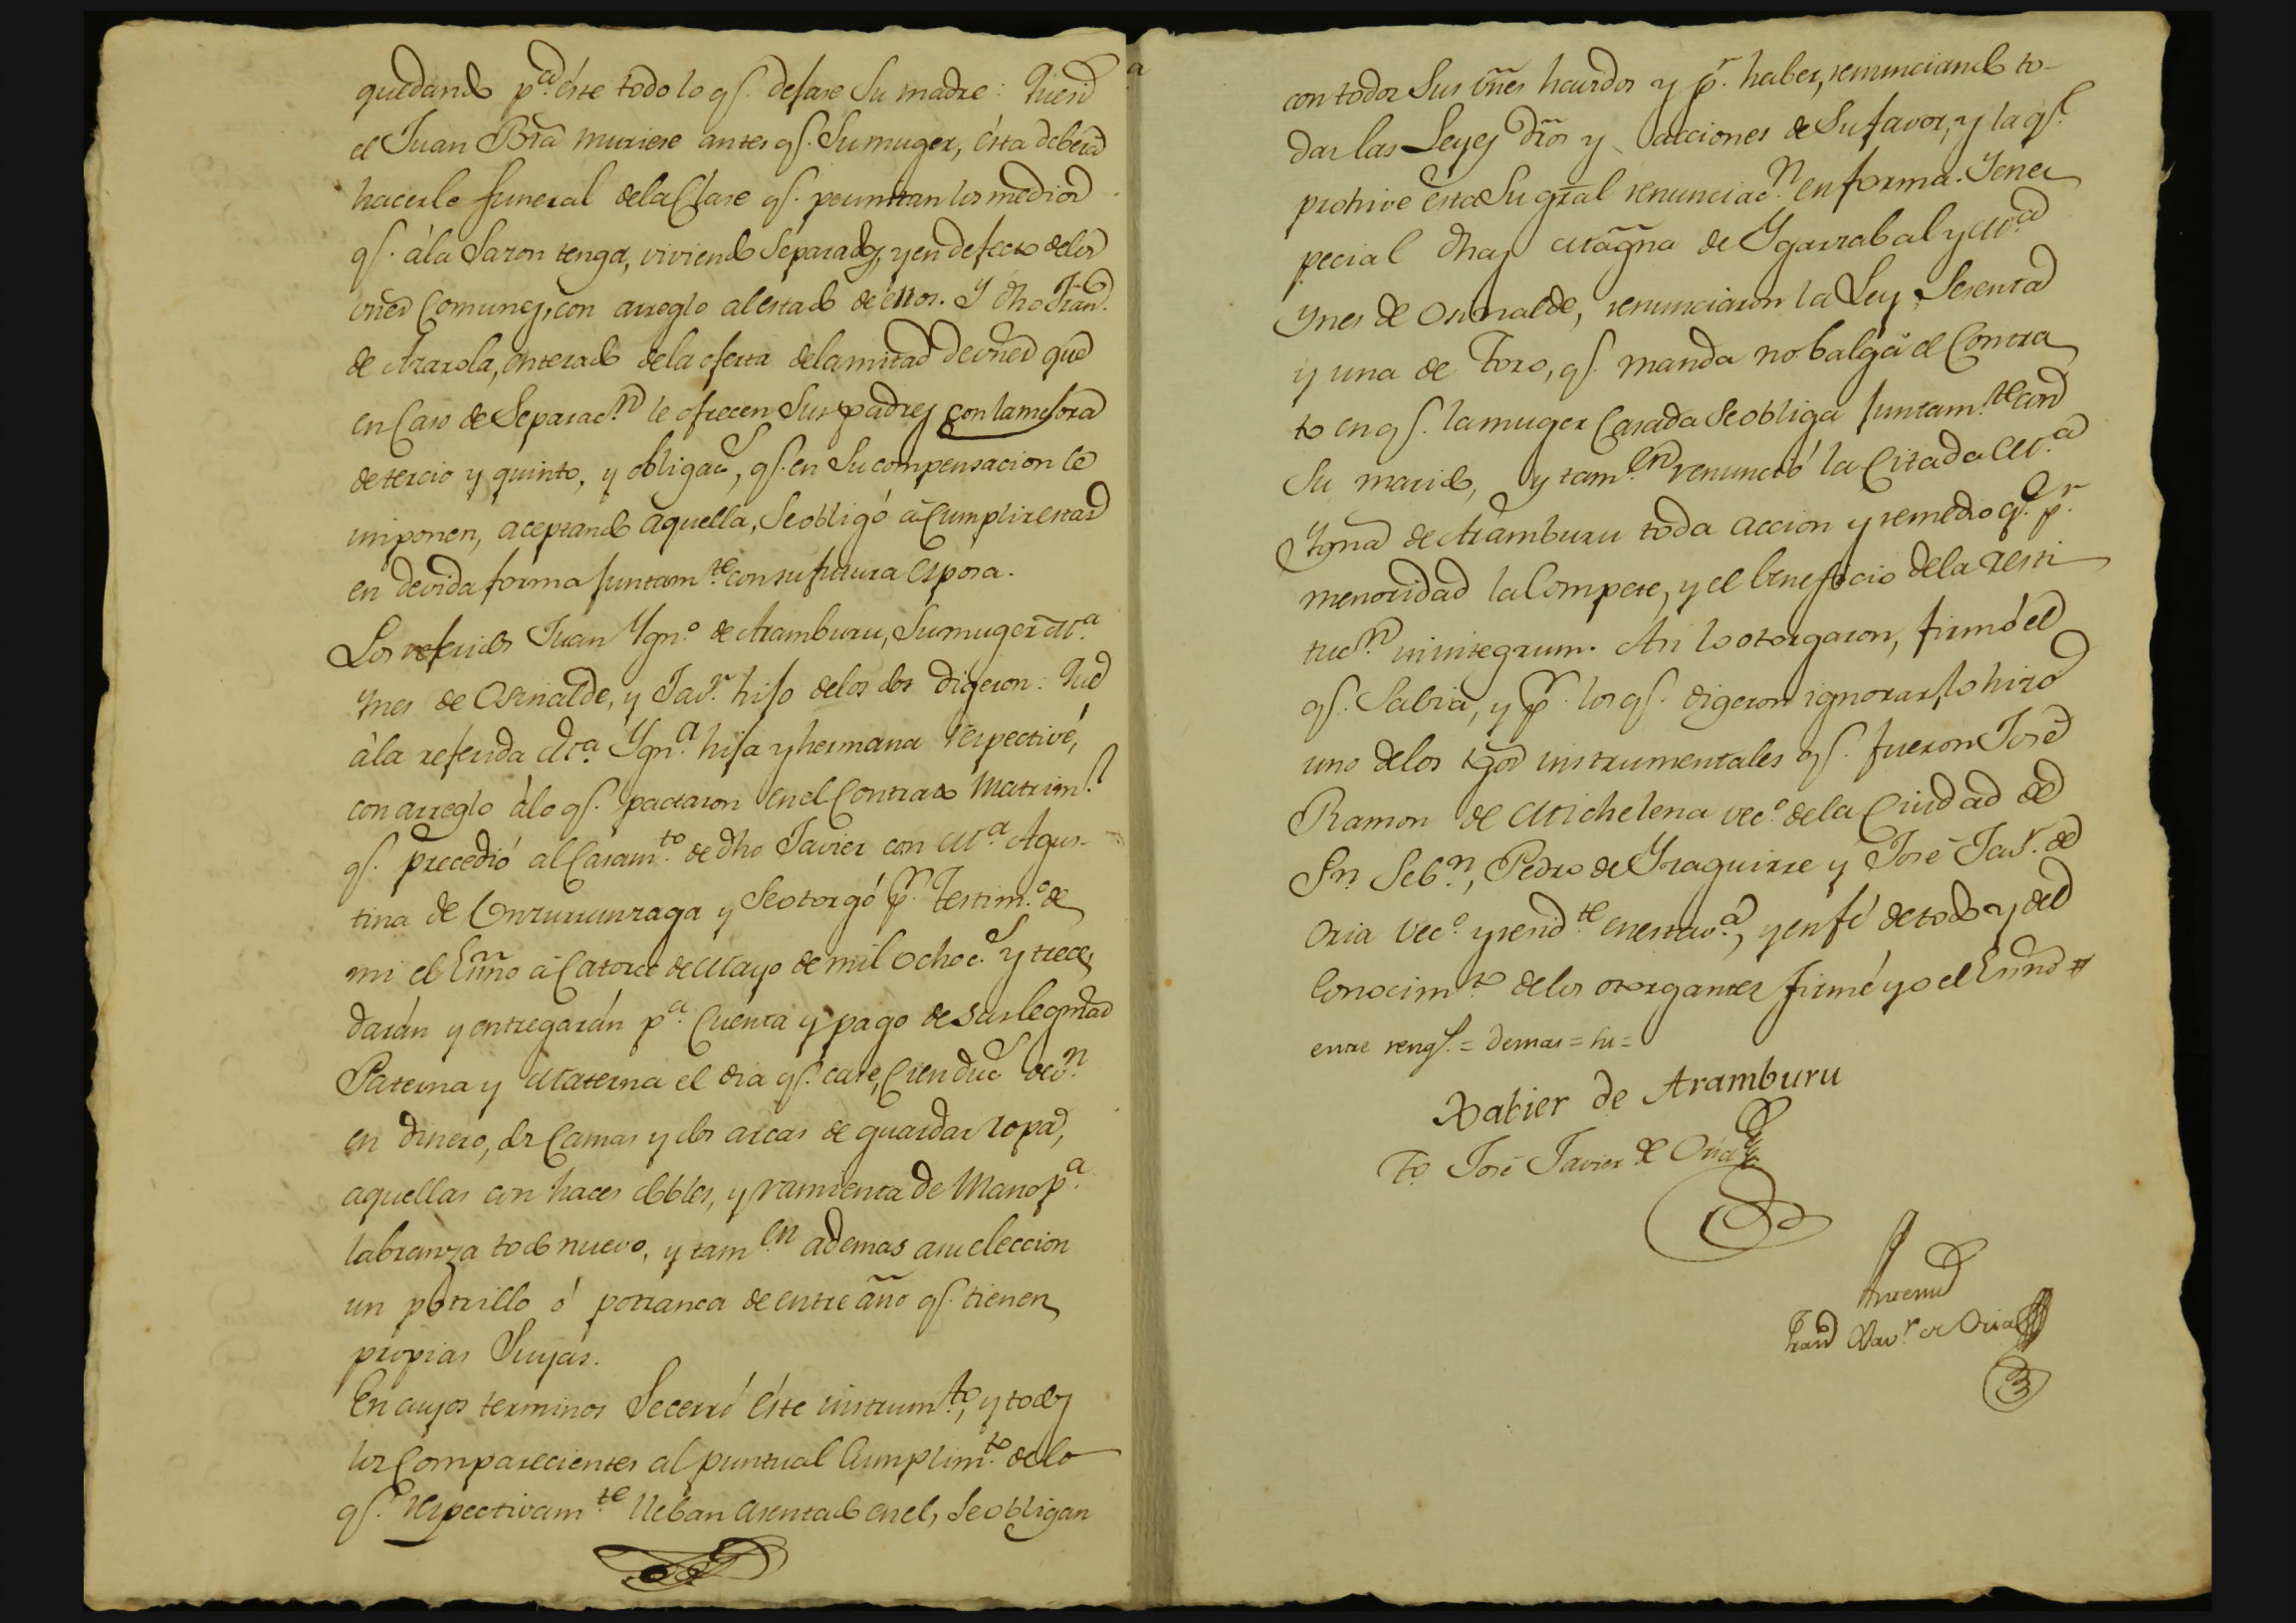 quedando p.ª éste todo lo q.ᵉ dejase Su madre: Que si
el Juan Bta muriese antes q.ᵉ Su muger, ésta deberá
hacerle funeral de la Clase q.ᵉ permitan los medios
q.ᵉ á la Sazon tenga, viviendo Separados, y en defecto de los
vñes Comunes, con arreglo al estado de éllos. Y dho Fran.ᶜᵒ
de Arazola, enterado de la oferta de la mitad de vñes que
en Caso de Separac.ⁿ le ofrecen Sus padres con la mejora
de tercio y quinto, y obligac.ˢ, q.ᵉ en Su compensacion le
imponen, aceptando aquella, Se obligó á Cumplir estas
en devida forma juntam.ᵗᵉ con su futura Esposa.
Los referidos Juan Ygn.º de Aramburu, Su muger M.ª
Ynes de Osinalde, y Jav.ʳ hijo de los dos digeron: Que
á la referida M.ª Ygn.ª hija y hermana respectivé,
con arreglo á lo q.ᵉ pactaron en el Contrato Matrim.ˡ
q.ᵉ precedió al Casam.ᵗᵒ de dho Javier con M.ª Agus-
tina de y Se otorgó p.ʳ Testim.º de
mi el Eññο á Catorce de Mayo de mil ochoc.ˢ y trece,
darán y entregarán p.ª Cuenta y pago de sus legmas
Paterna y Materna el dia q.ᵉ case, Cien duc.ˢ de v.ⁿ
en dinero, dos Camas y dos arcas de guardar ropa,
aquellas con haces dobles, y ramienta de Mano p.ª
labranza todo nuevo, y tam.ᵉⁿ ademas a su eleccion
un potrillo ó potranca de entre año q.ᵉ tienen
propias Suyas.
En cuyos terminos Se cerró éste instrum.ᵗᵒ, y todos
los Comparecientes al puntual Cumplim.ᵗᵒ de lo
q.ᵉ respectivam.ᵗᵉ lleban asentado en el, Se obligan
con todos Sus vñes havidos y p.ʳ haber, renunciando to-
das las Leyes dr̃os y acciones de Su favor, y la q.ᵉ
prohive ésta Su gr̃al renunciac.ⁿ en forma. Y en es
pecial dhas Magña de Ygarrabal y M.ª
Ynes de Osinalde, renunciaron la Ley Sesenta
y una de Toro, q.ᵉ manda no balga el Contra
to en q.ᵉ la muger Casada Se obliga juntam.ᵗᵉ con
Su marido, y tam.ᵉⁿ renunció la Citada M.ª
Ygna de Aramburu toda accion y remedio q.ᵉ p.ʳ
menoridad la Compete, y el beneficio de la resti
tuc.ⁿ in integrum. Asi lo otorgaron, firmó el
q.ᵉ Sabia, y p.ʳ los q.ᵉ digeron ignorar, lo hizo
uno de los tgõs instrumentales q.ᵉ fueron José
Ramon de Michelena vec.º de la Ciudad de
Sn. Seb.ⁿ, Pedro de Yraguirre y José Jav.ʳ de
Oria vec.º y resid.ᵗᵉ en esta v.ª, y en fé de todo y del
Conocim.ᵗᵒ de los otorgantes firmé yo el Eññο #
entre rengˢ. = demas = hi =
Xabier de Aramburu
Tº José Javier de Oria
Antemi
Xav.ʳ de Oria